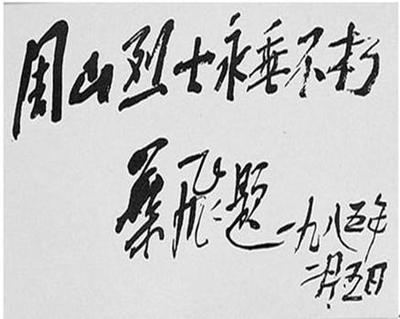 周山烈士永垂不朽
叶飞题 一九八五年
二月五日